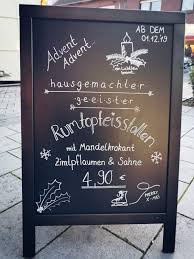 Advent
Advent...
AB DEM
01.12.19
hausgemachter
geeister
Rumtopfeisstollen
mit Mandelkrokant
Zimtpflaumen & Sahne
4,90 €